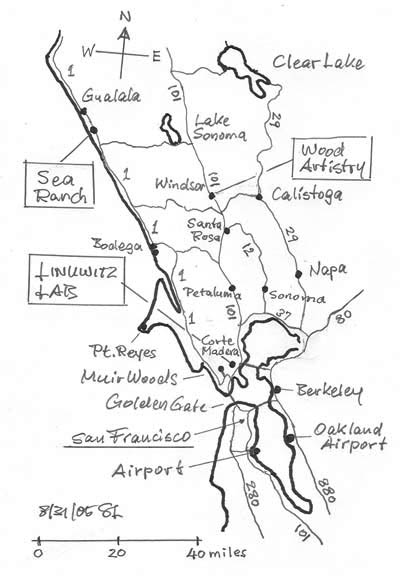 N
W E
1
Clear Lake
Gualala
101
29
Lake
Sonoma
Wood
Artistry
Sea
Ranch
1
Windsor
101
Calistoga
Santa
Rosa
1
12
29
Bodega
LINKWITZ
LAB
Napa
Petaluma
Sonoma
80
101
37
1
Pt. Reyes
Corte
Madera
Muir Woods
Berkeley
Golden Gate
San Francisco
Oakland
Airport
Airport
280
880
101
8/31/05 SL
0 20 40 miles